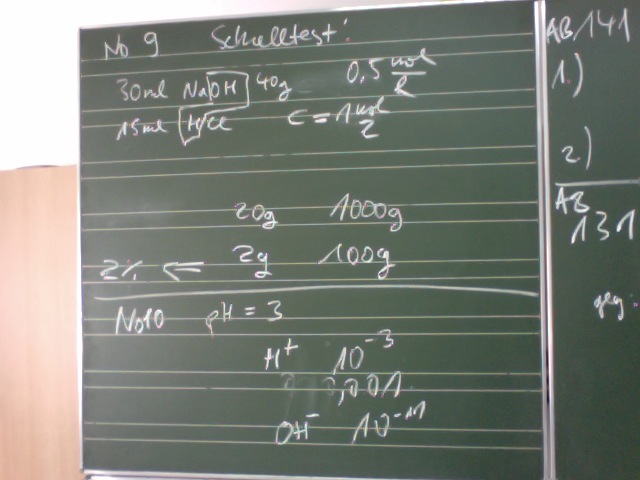 No 9 Schnelltest:
30ml NaOH 40g 0,5 mol/l
15ml HCl c = 1 mol/l
20g 1000g
2% ⇐ 2g 100g
No10 pH = 3
H⁺ 10⁻³
0,001
OH⁻ 10⁻¹¹
AB 141
1)
2)
AB
131
geg: